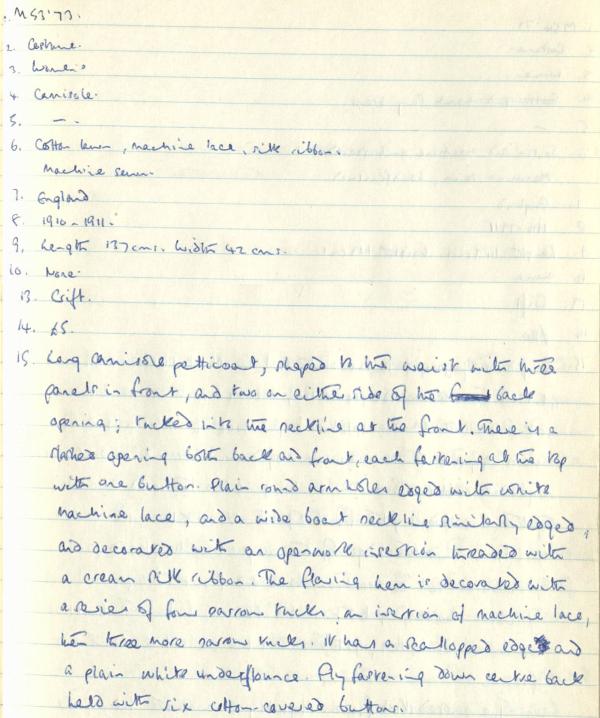 . M53'73.
2. Costume.
3. Women's
4. Camisole.
5. —.
6. Cotton lawn, machine lace, silk ribbon.
Machine sewn.
7. England
8. 1910-1911.
9. Length 137cms. Width 42 cms.
10. None.
13. Gift.
14. £5.
15. Long camisole petticoat, shaped to the waist with three
panels in front, and two on either side of the back
opening; tucked into the neckline at the front. There is a
slashed opening both back and front, each fastening at the top
with one button. Plain round arm holes edged with white
machine lace, and a wide boat neckline similarly edged,
and decorated with an openwork insertion threaded with
a cream silk ribbon. The flaring hem is decorated with
a series of four narrow tucks, an insertion of machine lace,
then three more narrow tucks. It has a scalloped edge and
a plain white underflounce. Fly fastening down centre back
held with six cotton-covered buttons.